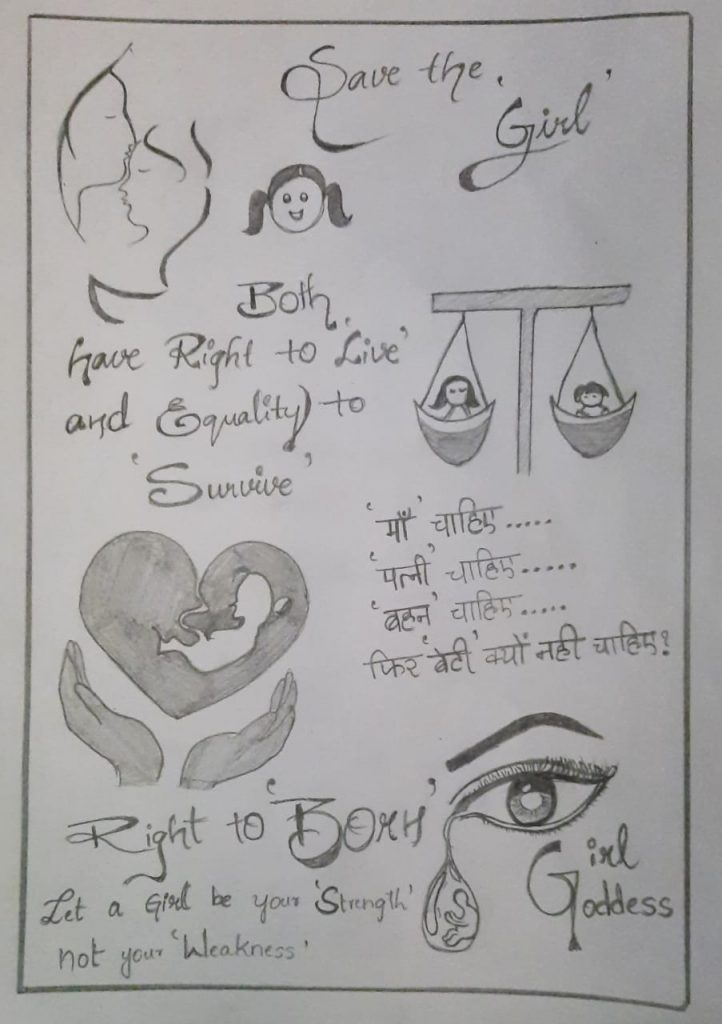 Save the
'Girl'
Both
have Right to 'Live'
and Equality to
'Survive'
'माँ' चाहिए.....
'पत्नी' चाहिए.....
'बहन' चाहिए.....
फिर 'बेटी' क्यों नही चाहिए?
Right to 'Born'
Let a Girl be your 'Strength'
not your 'Weakness'
Girl
Goddess